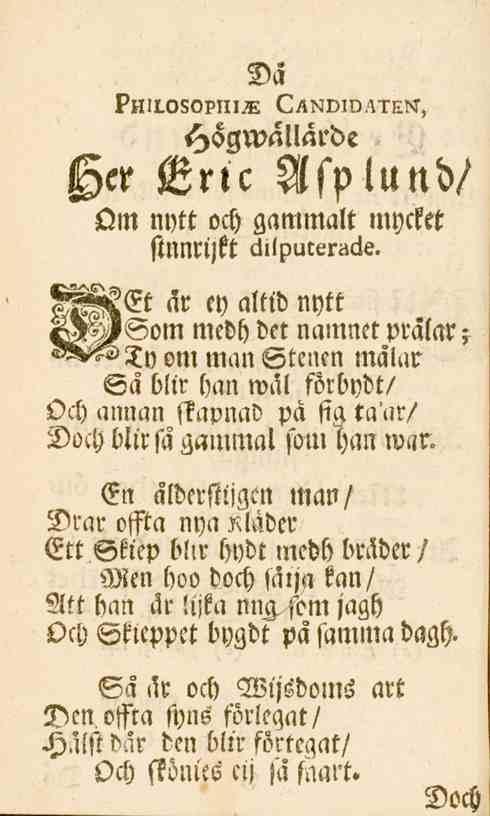 Då
PHILOSOPHIÆ CANDIDATEN,
Högwällärde
Her Eric Asplund/
Om nytt och gammalt mycket
sinnrijkt disputerade.
DEt är ey altid nytt
Som medh det namnet prålar;
Ty om man Stenen målar
Så blir han wäl förbydt/
Och annan skapnad på sig ta'ar/
Doch blir så gammal som han war.
En ålderstijgen man/
Drar offta nya Kläder
Ett Skiep blir bydt medh bräder/
Men hoo doch säija kan/
Att han är lijka ung som jagh
Och Skieppet bygdt på samma dagh.
Så är och Wijsdoms art
Den offta syns förlegat/
Hälst där den blir förtegat/
Och skönies eij så snart.
Doch